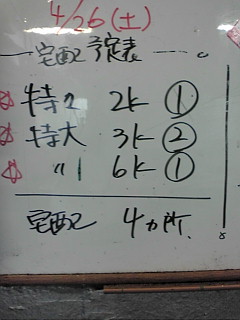 4/26(土)
宅配予定表
☆ 特2 2k ①
☆ 特大 3k ②
☆ 〃 6k ①
宅配 4ヵ所